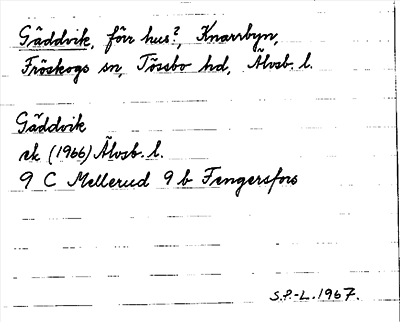 Gäddvik, förr hus?, Knarrbyn,
Fröskogs sn, Tössbo hd, Älvsb. l.
Gäddvik
ek (1966) Älvsb. l.
9 C Mellerud 9 b Fengersfors
S.P.-L. 1967.